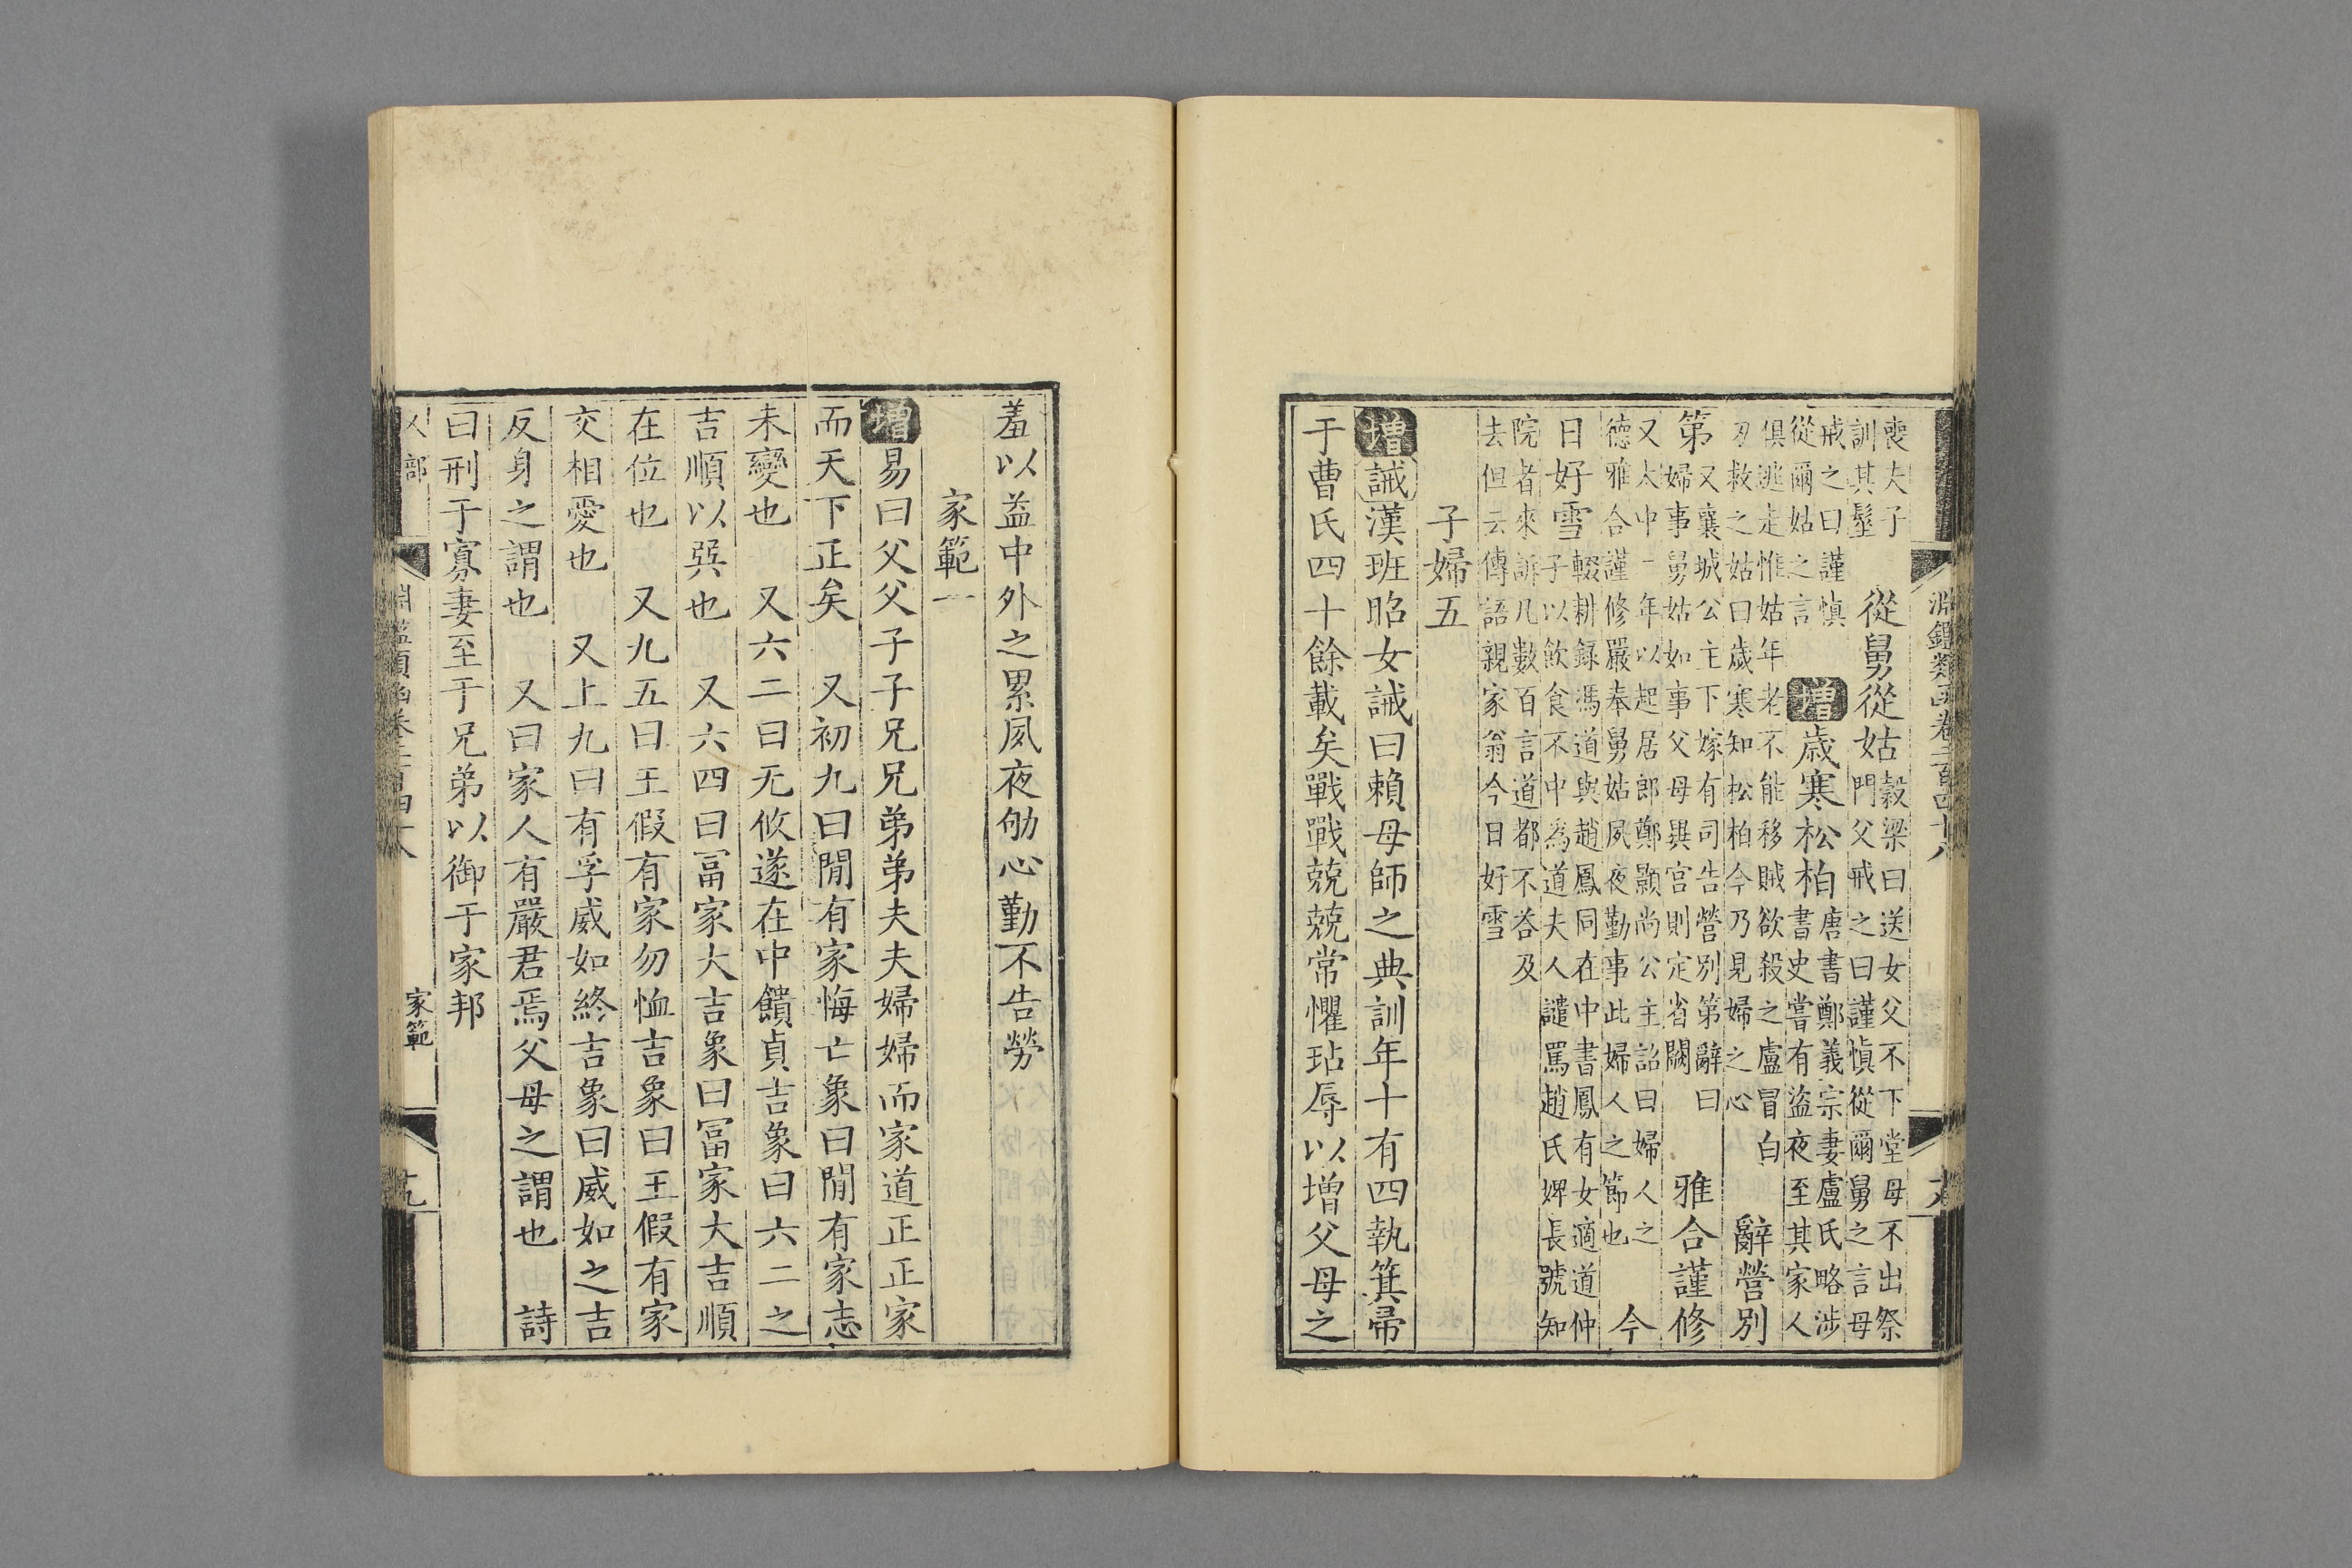 淵鑑類函卷二百四十八
喪夫子
訓其髽
從舅從姑
榖梁曰送女父不下堂母不出祭
門父戒之曰謹慎從爾舅之言母
戒之曰謹慎
從爾姑之言
增歲寒松柏
唐書鄭義宗妻盧氏略涉
書史嘗有盜夜至其家人
俱逃走惟姑年老不能移賊欲殺之盧冒白
刃救之姑曰歲寒知松柏今乃見婦之心
辭營別
第
又襄城公主下嫁有司告營別第辭曰
婦事舅姑如事父母異宮則定省闕
雅合謹修
又大中一年以起居郎鄭顥尚公主詔曰婦人之
德雅合謹修嚴奉舅姑夙夜勤事此婦人之節也
今
日好雪
輟耕録馮道與趙鳳同在中書鳳有女適道仲
子以飲食不中為道夫人譴罵趙氏婢長號知
院者來訴凡數百言道都不荅及
去但云傳語親家翁今日好雪
子婦五
增誡漢班昭女誡曰賴母師之典訓年十有四執箕帚
于曹氏四十餘載矣戰戰兢兢常懼玷辱以增父母之
羞以益中外之累夙夜劬心勤不告勞
家範一
增易曰父父子子兄兄弟弟夫夫婦婦而家道正正家
而天下正矣 又初九曰閒有家悔亡象曰閒有家志
未變也 又六二曰无攸遂在中饋貞吉象曰六二之
吉順以巽也 又六四曰冨家大吉象曰冨家大吉順
在位也 又九五曰王假有家勿恤吉象曰王假有家
交相愛也 又上九曰有孚威如終吉象曰威如之吉
反身之謂也 又曰家人有嚴君焉父母之謂也 詩
曰刑于寡妻至于兄弟以御于家邦
家範